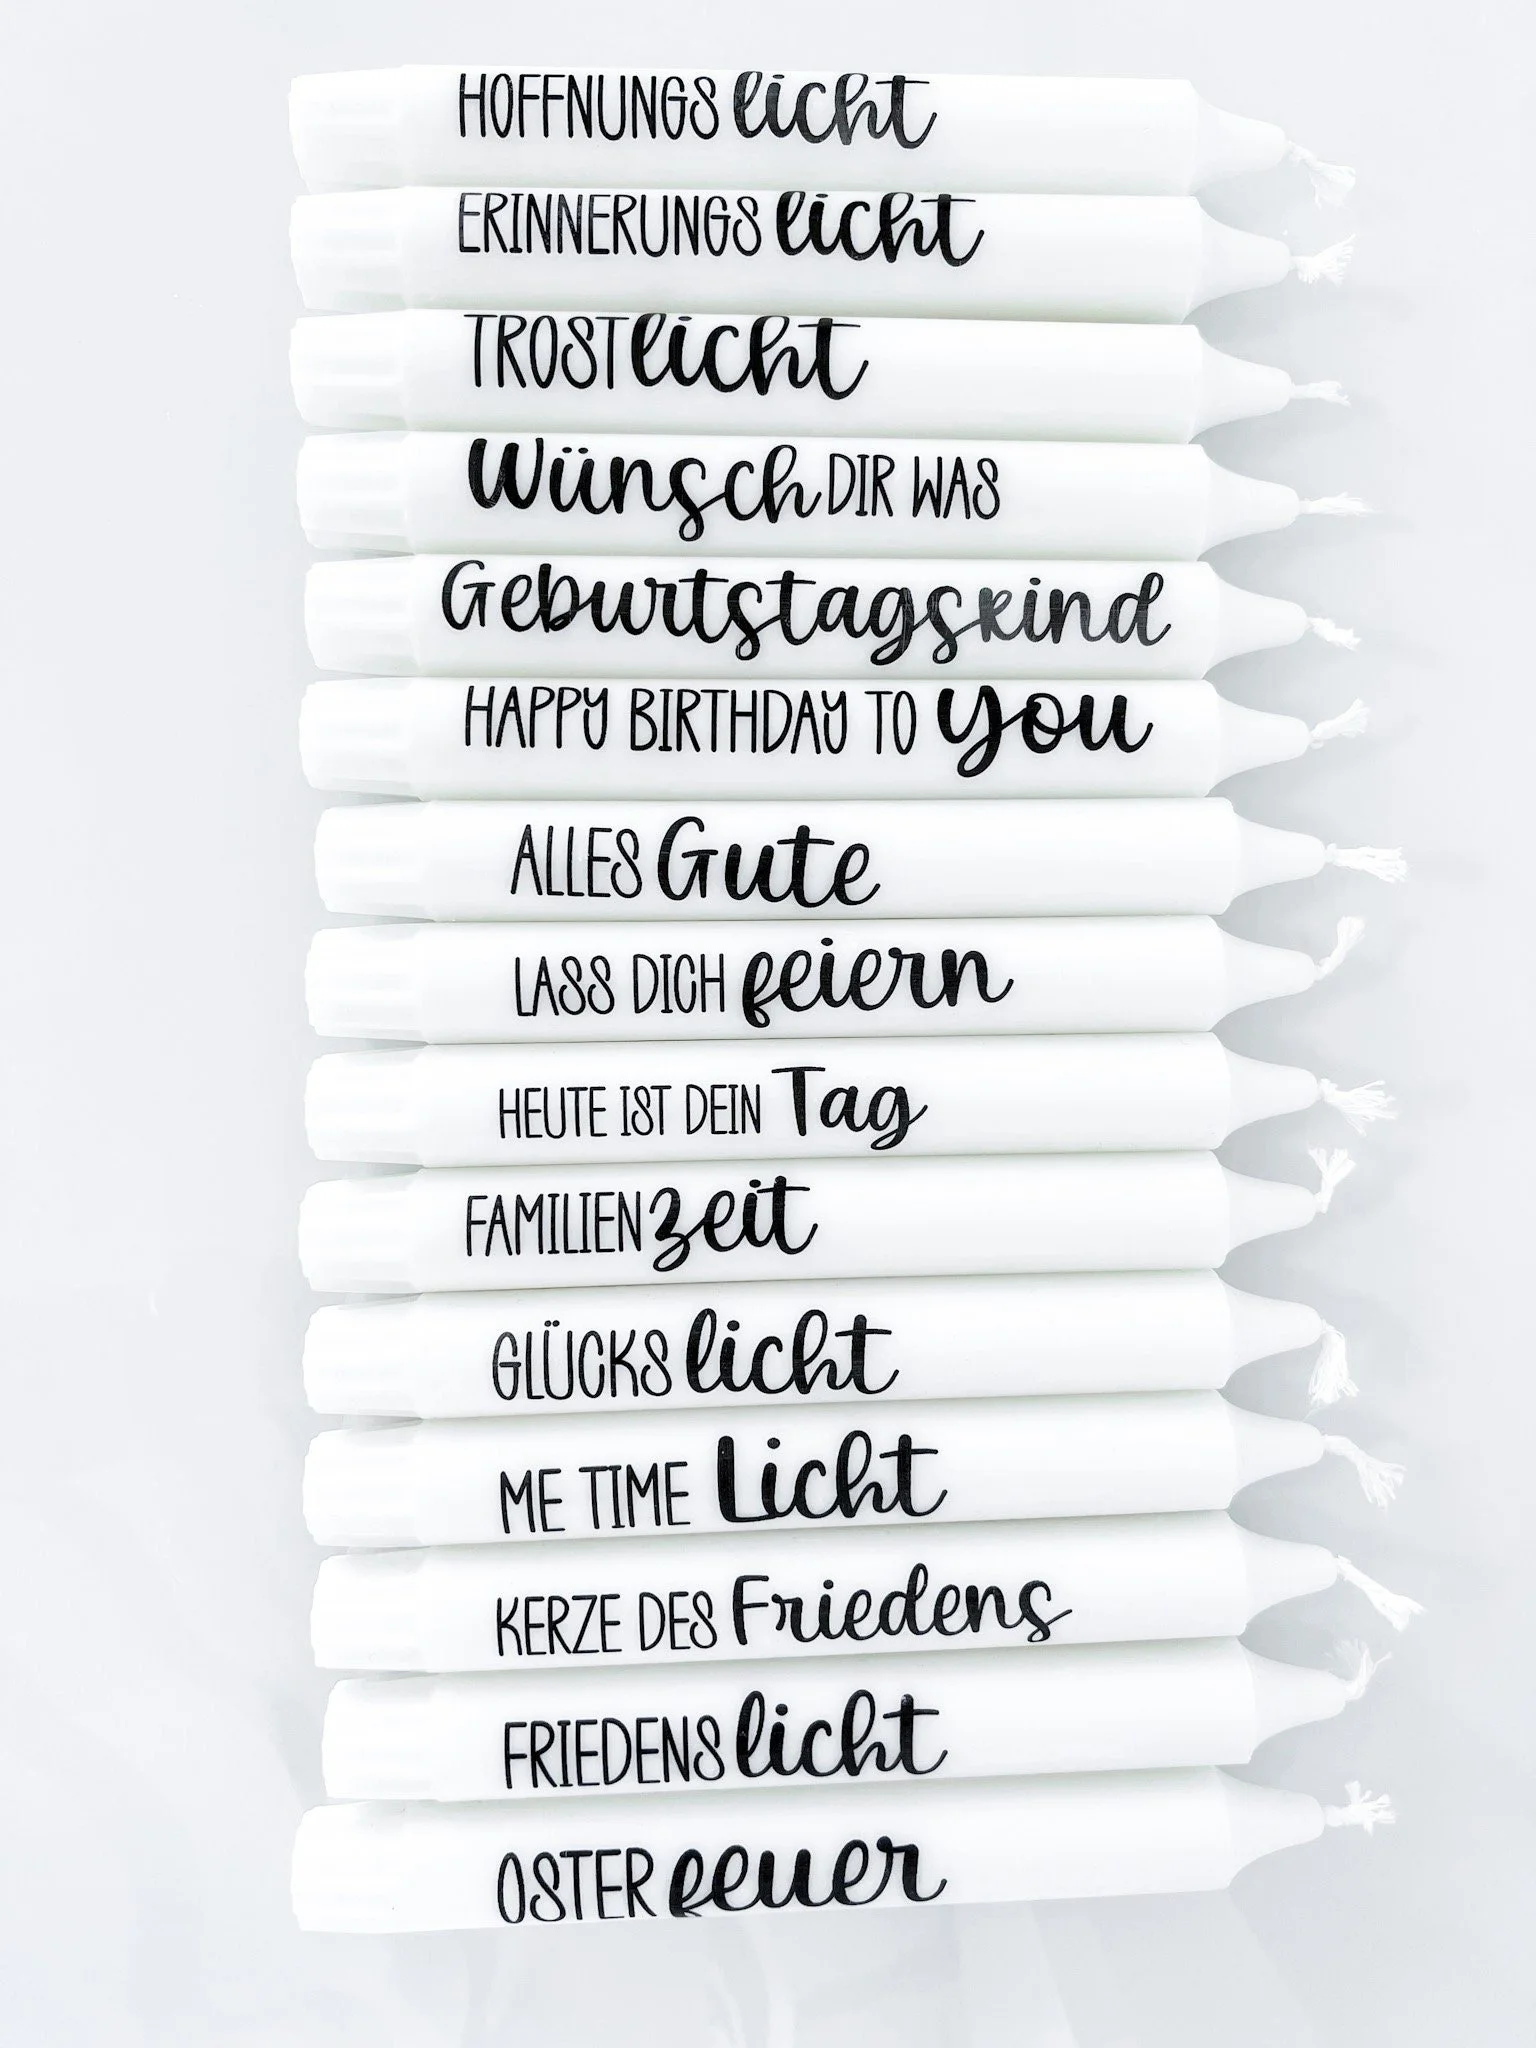 HOFFNUNGSlicht
ERINNERUNGSlicht
TROSTlicht
Wünsch DIR WAS
Geburtstagskind
HAPPY BIRTHDAY TO you
ALLES Gute
LASS DICH feiern
HEUTE IST DEIN Tag
FAMILIENzeit
GLÜCKSlicht
ME TIME Licht
KERZE DES Friedens
FRIEDENSlicht
OSTERfeuer